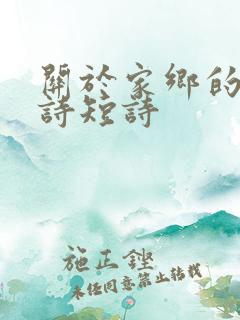 關於家鄉的
詩短詩
施正鏗
未经同意禁止转载